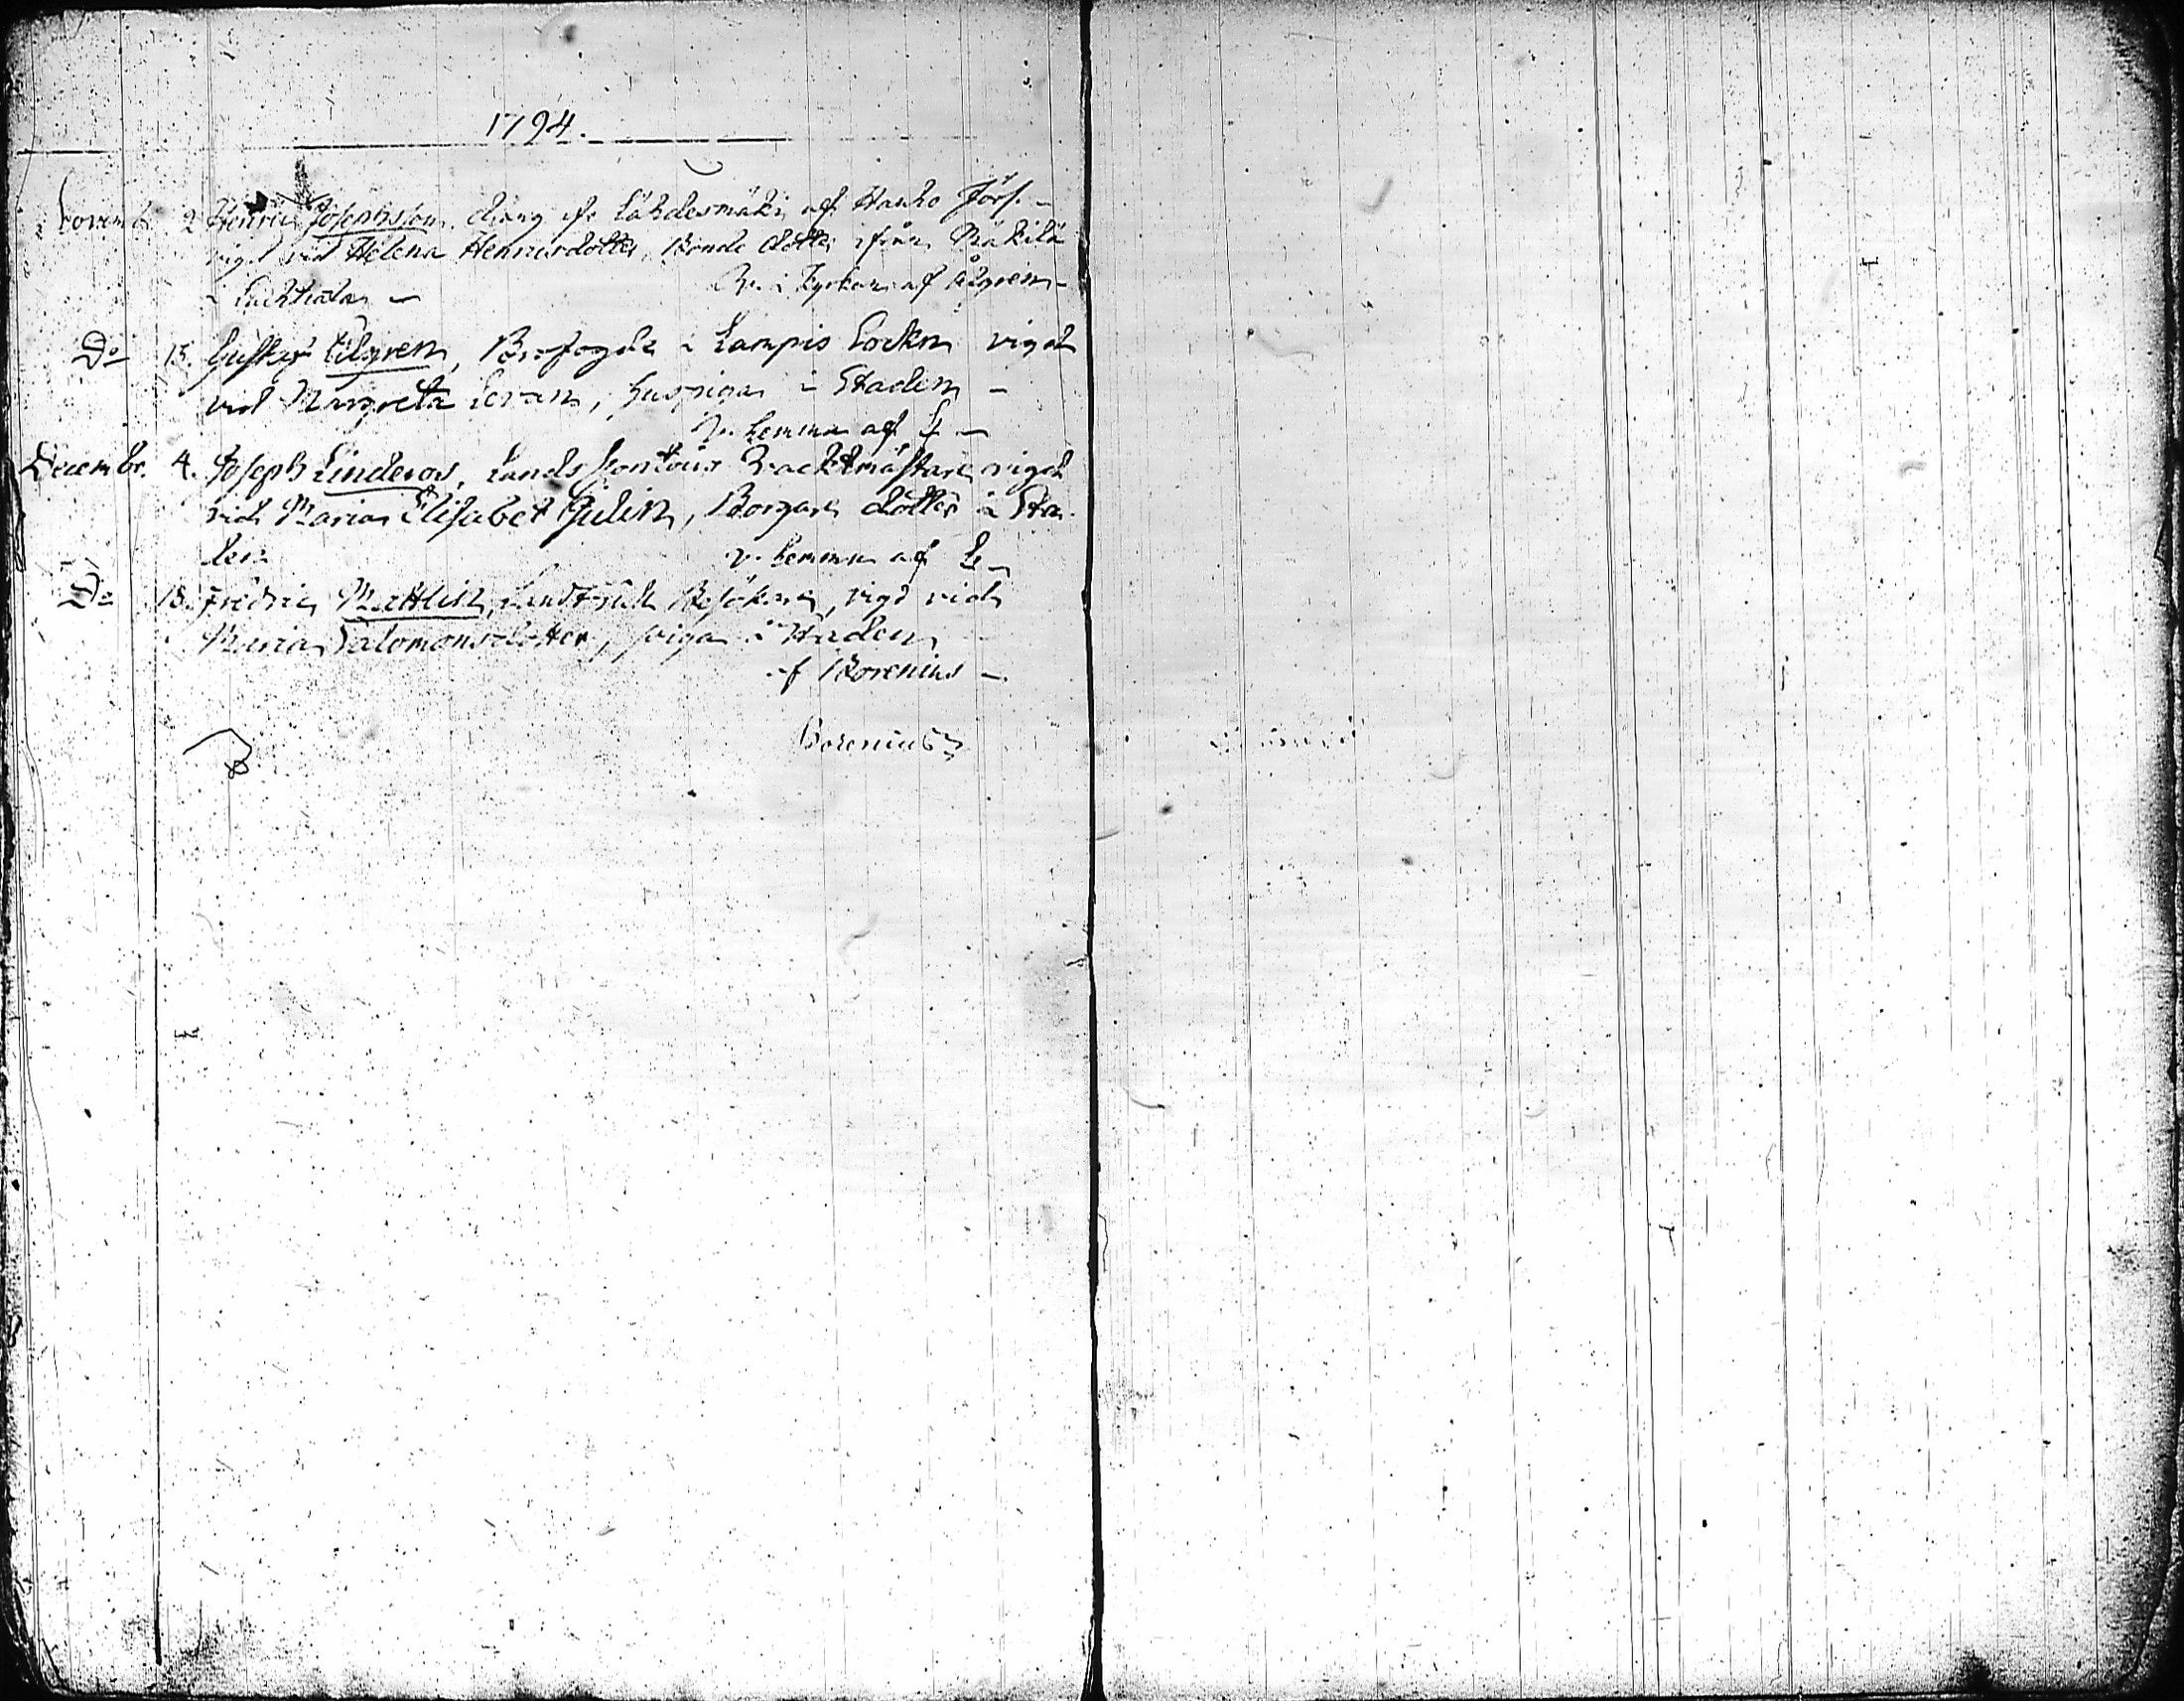 1794.
Novemb. 2 Henric Josephsson, dräng ifr. Lähdesmäki af Hauho Förs. -
vigd vid Helena Henricsdotter, Bonde dotter ifrån Mäkilä
i Luchtiala - i Kyrkan af Ålgren -
Do 15. Gustaf Ålgren, Brofogde i Lampis Sockn vigd
vid Margreta Levan, huspiga i Staden -
hemma af L -
Decembr. 4. Joseph Linderos, Lands Contoirs Vacktmästare vigd
vid Maria Elisabet Julin, Borgare dotter i Sta-
den v. hemma af L -
Do 18. Fredric Mattlin, Landtull Besökare, vigd vid
Maria Salomonsdotter, piga i Staden
af Borenius -
Borenius